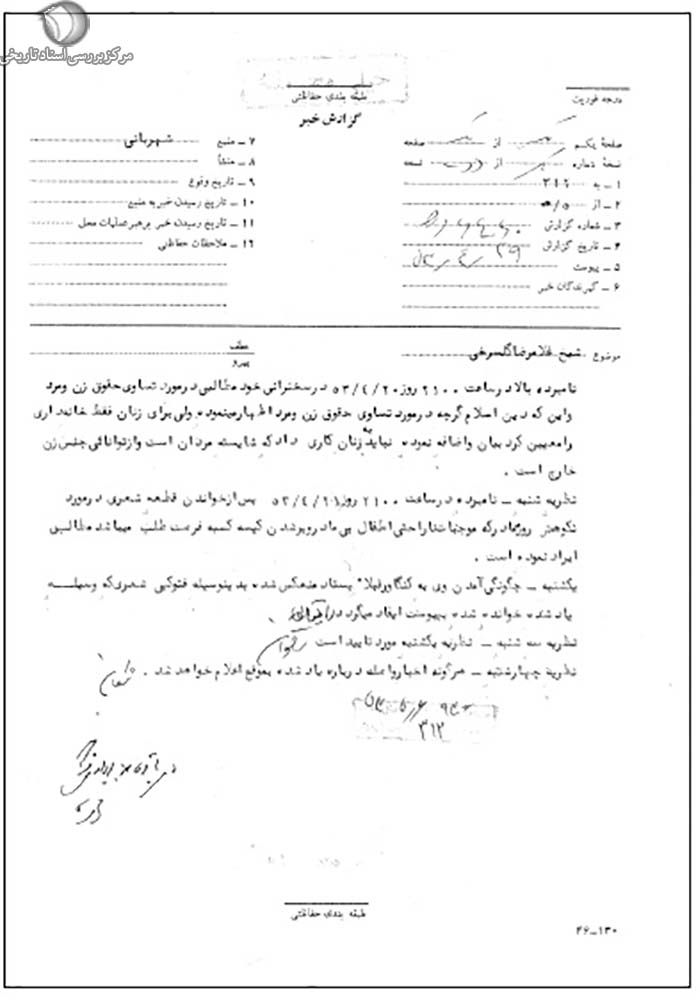 مرکز بررسی اسناد تاریخی
طبقه بندی حفاظتی
درجه فوریت
گزارش خبر
صفحهٔ یکم از صفحه
۷ ـ منبع شهربانی
نسخهٔ شماره از نسخه
۸ ـ منشأ
۱ ـ به ۳۱۲
۹ ـ تاریخ وقوع
۲ ـ از ۵/ه
۱۰ ـ تاریخ رسیدن خبر به منبع
۳ ـ شماره گزارش
۱۱ ـ تاریخ رسیدن خبر برهبر عملیات محل
۴ ـ تاریخ گزارش
۱۲ ـ ملاحظات حفاظتی
۵ ـ پیوست
۶ ـ گیرندگان خبر
موضوع شیخ غلامرضا گلسرخی
عطف
پیرو
نامبرده بالا در ساعت ۲۱۰۰ روز ۵۳/۴/۲۰ در سخنرانی خود مطالبی در مورد تساوی حقوق زن و مرد
و این که دین اسلام گرچه در مورد تساوی حقوق زن و مرد اظهار مینموده ولی برای زنان فقط خانه داری
را معیین کرد بیان و اضافه نموده نباید به زنان کاری داد که شایسته مردان است و از توانائی جنس زن
خارج است .
نظریه شنبه ـ نامبرده در ساعت ۲۱۰۰ روز ۵۳/۴/۲۱ پس از خواندن قطعه شعری در مورد
نکوهش روزگار که موجبات ناراحتی اطفال بی مادر و پر شدن کیسه کسبه فرصت طلب میباشد مطالبی
ایراد نموده است .
یکشنبه ـ چگونگی آمدن وی به کنگاور قبلا" بستاد منعکس شده بدینوسیله فتوکپی شعری که وسیله
یاد شده خوانده شده بپیوست ایفاد میگردد
نظریه سه شنبه ـ نظریه یکشنبه مورد تایید است
نظریه چهارشنبه ـ هرگونه اخبار واصله درباره یاد شده بموقع اعلام خواهد شد .
۳۱۲
طبقه بندی حفاظتی
۴۶ـ۱۳۰